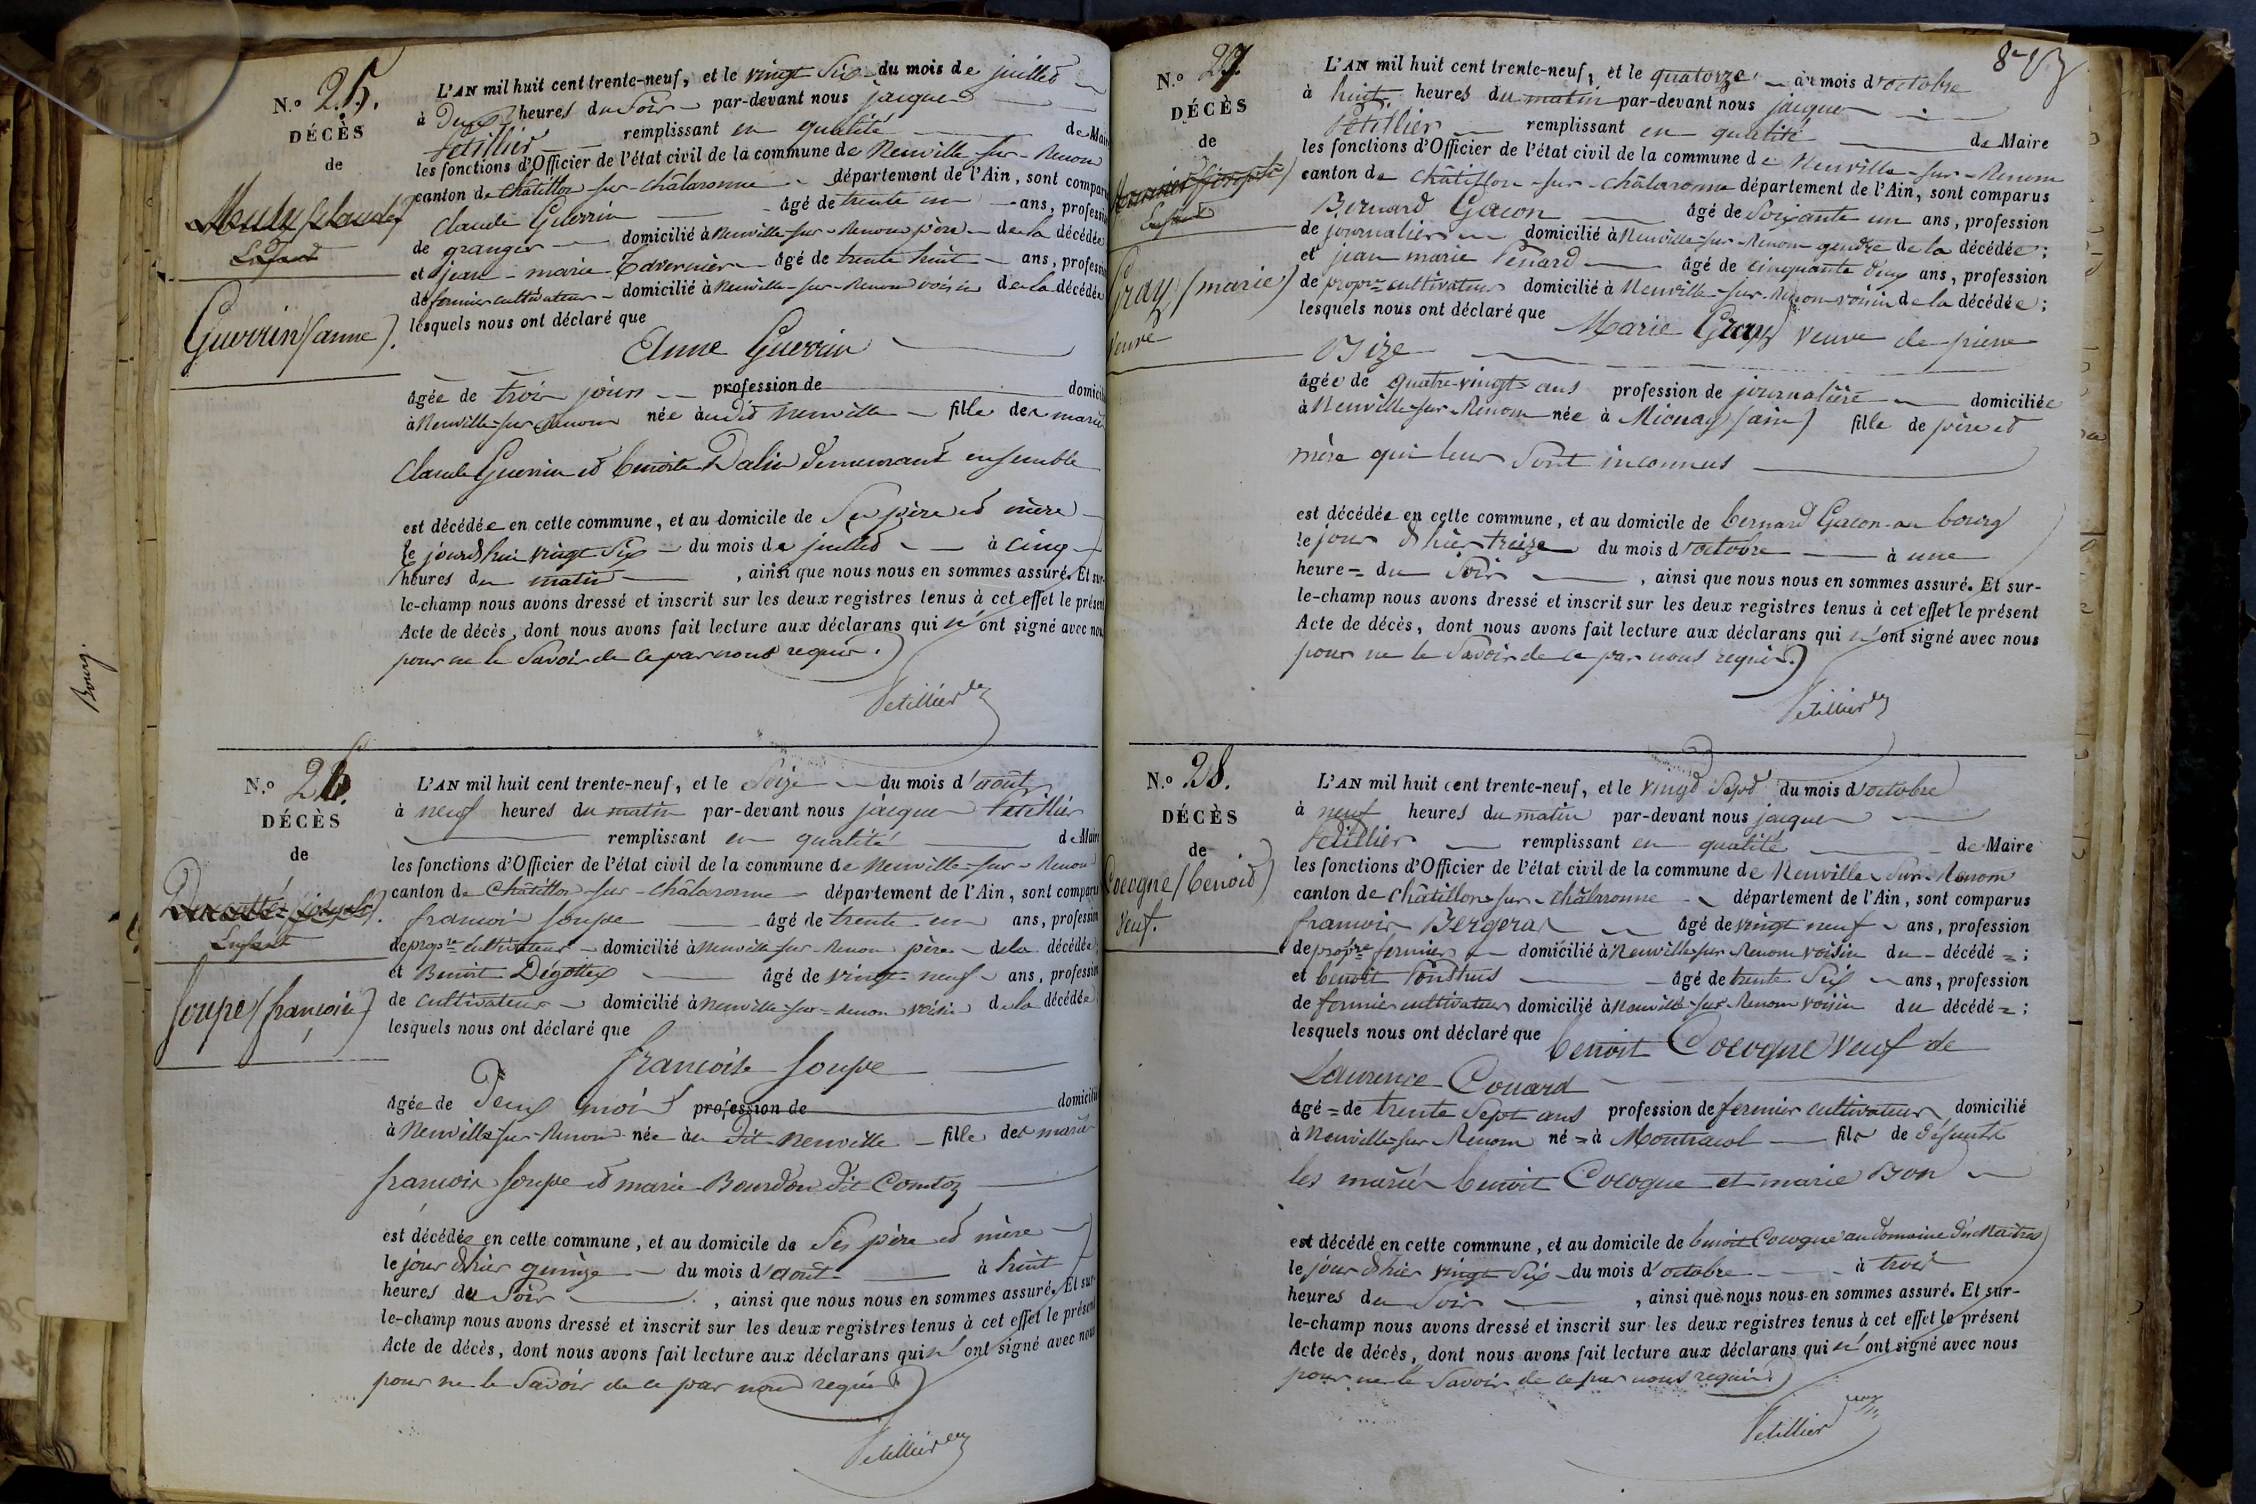 N.º 25.
DÉCÈS
de
Enfant
Guerrin (anne).
L'AN mil huit cent trente-neuf, et le vingt six du mois de juillet
à Deux heures du Soir par-devant nous jacques
Petillier remplissant en qualité de Maire
les fonctions d'Officier de l'état civil de la commune de Neuville-sur-Renom
canton de châtillon-sur-châlaronne département de l'Ain, sont comparus
Claude Guerrin âgé de trente un ans, profession
de granger domicilié à Neuville-sur-Renom père de la décédée
et jean-marie Tavernier âgé de trente huit ans, profession
de fermier cultivateur domicilié à Neuville-sur-Renom voisin de la décédée
lesquels nous ont déclaré que
Anne Guerrin
âgée de trois jours profession de domicilié
à Neuville-sur-Renom née au dit Neuville fille des mariés
Claude Guerrin et benoite Dalin demeurant ensemble
est décédée en cette commune, et au domicile de Ses père et mère
le jourd'hui vingt Six du mois de juillet à cinq
heures du matin , ainsi que nous nous en sommes assuré. Et sur-
le-champ nous avons dressé et inscrit sur les deux registres tenus à cet effet le présent
Acte de décès, dont nous avons fait lecture aux déclarans qui n'ont signé avec nous
pour ne le Savoir de ce par nous requis.
Petillier
Bourg.
N.º 26.
DÉCÈS
de
Enfant
Soupe (françoise)
L'AN mil huit cent trente-neuf, et le Seize du mois d'août
à neuf heures du matin par-devant nous jacques Petillier
remplissant en qualité de Maire
les fonctions d'Officier de l'état civil de la commune de Neuville-sur-Renom
canton de Châtillon-sur-châlaronne département de l'Ain, sont comparus
françois Soupe âgé de trente un ans, profession
de propre cultivateur domicilié à Neuville-sur-Renom père de la décédée
et Benoit Dégotteix âgé de vingt-neuf ans, profession
de cultivateur domicilié à Neuville-sur-Renom voisin de la décédée
lesquels nous ont déclaré que
francoise Soupe
âgée de Deux mois profession de domicilié
à Neuville-sur-Renom née au dit Neuville fille des mariés
francois Soupe et marie Bourdon dit Comtoz
est décédée en cette commune, et au domicile de Ses père et mère
le jour d'hier quinze du mois d'août à huit
heures du Soir , ainsi que nous nous en sommes assuré. Et sur-
le-champ nous avons dressé et inscrit sur les deux registres tenus à cet effet le présent
Acte de décès, dont nous avons fait lecture aux déclarans qui n'ont signé avec nous
pour ne le Savoir de ce par nous requis
Petillier
N.º 27.
DÉCÈS
de
Enfant
Gray (marie)
veuve
L'AN mil huit cent trente-neuf, et le quatorze du mois d'octobre
à huit heures du matin par-devant nous jacques
Petillier remplissant en qualité de Maire
les fonctions d'Officier de l'état civil de la commune de Neuville-sur-Renom
canton de châtillon-sur-châlaronne département de l'Ain, sont comparus
Bernard Gacon âgé de Soixante un ans, profession
de journalier domicilié à Neuville-sur-Renom gendre de la décédée;
et jean marie Penard âgé de cinquante deux ans, profession
de propre cultivateur domicilié à Neuville-sur-Renom voisin de la décédée;
lesquels nous ont déclaré que Marie Gray veuve de pierre
Bize
âgée de quatre-vingts ans profession de journalière domiciliée
à Neuville-sur-Renom née à Mionay (ain) fille de père et
mère qui leur Sont inconnus
est décédée en cette commune, et au domicile de bernard Gacon au bourg
le jour d'hier treize du mois d'octobre à une
heure = du Soir , ainsi que nous nous en sommes assuré. Et sur-
le-champ nous avons dressé et inscrit sur les deux registres tenus à cet effet le présent
Acte de décès, dont nous avons fait lecture aux déclarans qui n'ont signé avec nous
pour ne le Savoir de ce par nous requis.
Petillier
N.º 28.
DÉCÈS
de
Cocogne (benoit)
veuf.
L'AN mil huit cent trente-neuf, et le vingt Sept du mois d'octobre
à neuf heures du matin par-devant nous jacques
Petillier remplissant en qualité de Maire
les fonctions d'Officier de l'état civil de la commune de Neuville-Sur-Renom
canton de châtillon-sur-châlaronne département de l'Ain, sont comparus
francois Bergeras âgé de vingt neuf ans, profession
de propre fermier domicilié à Neuville-sur-Renom voisin du décédé =;
et benoit Ponthus âgé de trente Six ans, profession
de fermier cultivateur domicilié à Neuville-sur-Renom voisin du décédé =;
lesquels nous ont déclaré que benoit Cocogne veuf de
Laurence Couard
âgé = de trente Sept ans profession de fermier cultivateur domicilié
à Neuville-sur-Renom né = à Montracol fils de défunts
les mariés benoit Cocogne et marie Bon
est décédé en cette commune, et au domicile de benoit Cocogne au domaine des Maitres
le jour d'hier vingt Six du mois d'octobre à trois
heures du Soir , ainsi que nous nous en sommes assuré. Et sur-
le-champ nous avons dressé et inscrit sur les deux registres tenus à cet effet le présent
Acte de décès, dont nous avons fait lecture aux déclarans qui n'ont signé avec nous
pour ne le Savoir de ce par nous requis
Petillier